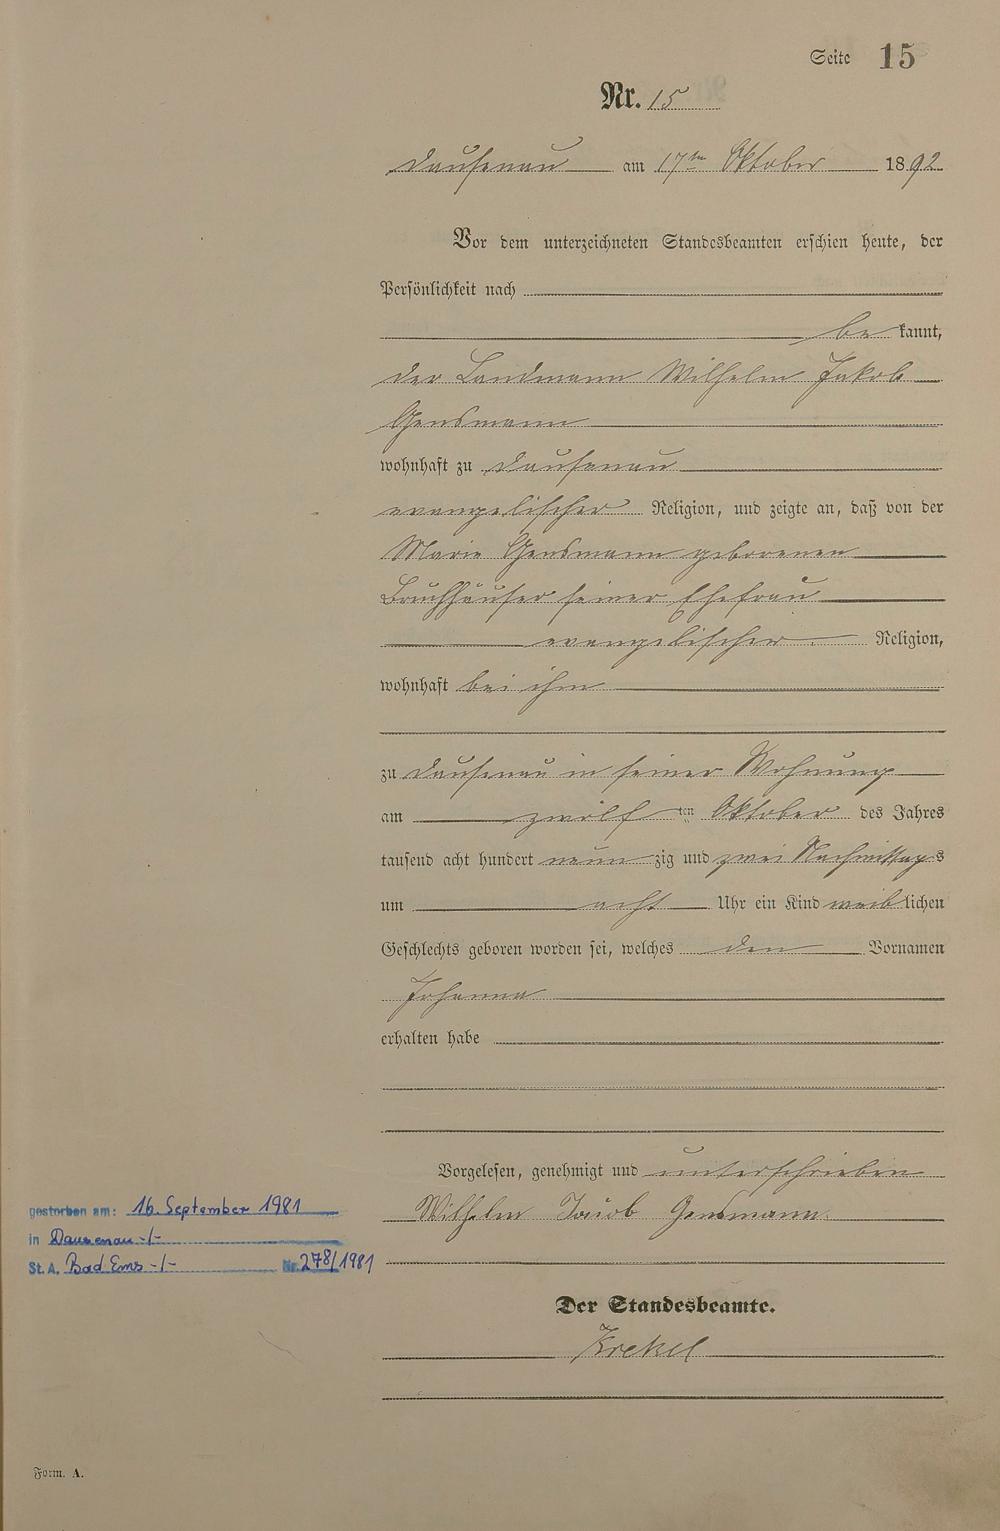 Seite 15
Nr. 15
Dausenau am 17ten Oktober 1892
Vor dem unterzeichneten Standesbeamten erschien heute, der
Persönlichkeit nach
be kannt,
der Landmann Wilhelm Jakob
Gensmann
wohnhaft zu Dausenau
evangelischer Religion, und zeigte an, daß von der
Marie Gensmann geborenen
Bruchhäuser seiner Ehefrau
evangelischer Religion,
wohnhaft bei ihm
zu Dausenau in seiner Wohnung
am zwölf ten Oktober des Jahres
tausend acht hundert neun zig und zwei Nachmittags
um acht Uhr ein Kind weiblichen
Geschlechts geboren worden sei, welches den Vornamen
Johanna
erhalten habe
Vorgelesen, genehmigt und unterschrieben
Wilhelm Jacob Gensmann.
gestorben am: 16. September 1981
in Dausenau -/-
St. A. Bad Ems -/- Nr. 278/1981
Der Standesbeamte.
Krekel
Form. A.